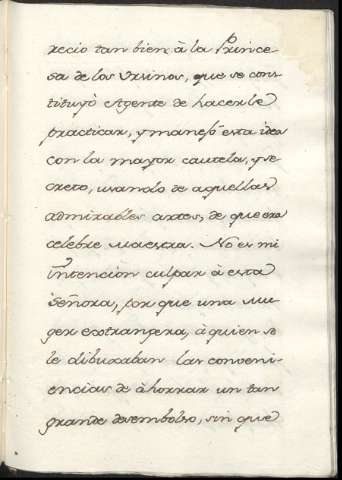 recio tan bien à la Prince-
sa de los Ursinos, que se cons-
tituyò Agente de hacerle
practicar, y manejò esta idea
con la mayor cautela, y se-
creto, usando de aquellas
admirables artes, de que era
celebre Maestra. No es mi
intencion culpar à esta
Señora, por que una Mu-
ger extrangera, à quien se
le dibuxaban las conveni-
encias de àhorrar un tan
grande desembolso, sin que